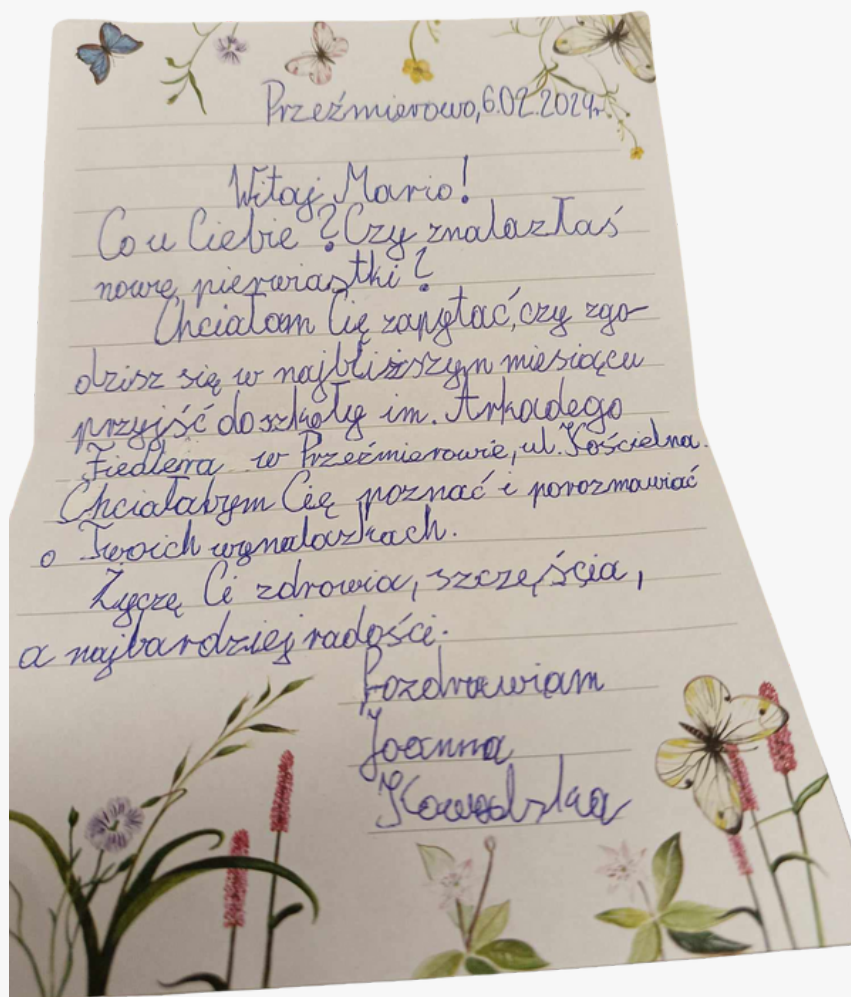 Przeźmierowo, 6.02.2024r.
Witaj Mario!
Co u Ciebie? Czy znalazłaś
nowe pierwiastki?
Chciałam Cię zapytać, czy zgo-
dzisz się w najbliższym miesiącu
przyjść do szkoły im. Arkadego
Fiedlera w Przeźmierowie, ul. Kościelna.
Chciałabym Cię poznać i porozmawiać
o Twoich wynalazkach.
Życzę Ci zdrowia, szczęścia,
a najbardziej radości.
Pozdrawiam
Joanna